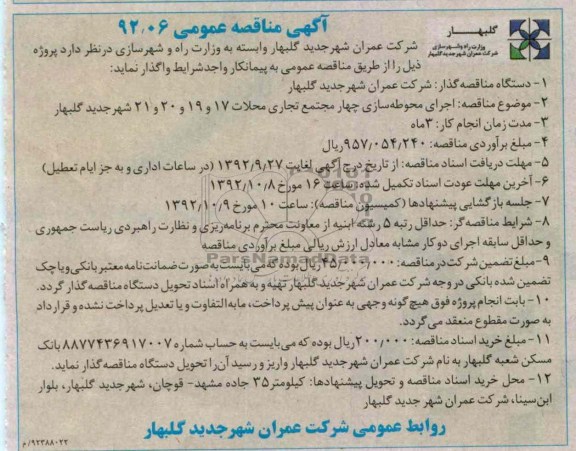 آگهی مناقصه عمومی ۹۲٫۰۶
گلبهار
وزارت راه و شهرسازی
شرکت عمران شهر جدید گلبهار
شرکت عمران شهرجدید گلبهار وابسته به وزارت راه و شهرسازی درنظر دارد پروژه
ذیل را از طریق مناقصه عمومی به پیمانکار واجدشرایط واگذار نماید:
۱- دستگاه مناقصه‌گذار: شرکت عمران شهرجدید گلبهار
۲- موضوع مناقصه: اجرای محوطه‌سازی چهار مجتمع تجاری محلات ۱۷ و ۱۹ و ۲۰ و ۲۱ شهرجدید گلبهار
۳- مدت زمان انجام کار: ۳ماه
۴- مبلغ برآوردی مناقصه: ۹۵۷٫۰۵۴٫۲۴۰ریال
۵- مهلت دریافت اسناد مناقصه: از تاریخ درج آگهی لغایت ۱۳۹۲٫۹٫۲۷ (در ساعات اداری و به جز ایام تعطیل)
۶- آخرین مهلت عودت اسناد تکمیل شده: ساعت ۱۶ مورخ ۱۳۹۲٫۱۰٫۸
۷- جلسه بازگشایی پیشنهادها (کمیسیون مناقصه): ساعت ۱۰ مورخ ۱۳۹۲٫۱۰٫۹
۸- شرایط مناقصه‌گر: حداقل رتبه ۵ رشته ابنیه از معاونت محترم برنامه‌ریزی و نظارت راهبردی ریاست جمهوری
و حداقل سابقه اجرای دو کار مشابه معادل ارزش ریالی مبلغ برآوردی مناقصه
۹- مبلغ تضمین شرکت در مناقصه: ۴۵٫۰۰۰٫۰۰۰ریال بوده که می‌بایست به صورت ضمانت‌نامه معتبر بانکی و یا چک
تضمین شده بانکی در وجه شرکت عمران شهرجدید گلبهار تهیه و به همراه اسناد تحویل دستگاه مناقصه‌گذار گردد.
۱۰- بابت انجام پروژه فوق هیچ‌گونه وجهی به عنوان پیش پرداخت، مابه‌التفاوت و یا تعدیل پرداخت نشده و قرارداد
به صورت مقطوع منعقد می‌گردد.
۱۱- مبلغ خرید اسناد مناقصه: ۲۰۰٫۰۰۰ریال بوده که می‌بایست به حساب شماره ۸۸۷۷۴۳۶۹۱۷۰۰۷ بانک
مسکن شعبه گلبهار به نام شرکت عمران شهرجدید گلبهار واریز و رسید آن را تحویل دستگاه مناقصه‌گذار نماید.
۱۲- محل خرید اسناد مناقصه و تحویل پیشنهادها: کیلومتر۳۵ جاده مشهد- قوچان، شهرجدید گلبهار، بلوار
ابن‌سینا، شرکت عمران شهر جدید گلبهار
روابط عمومی شرکت عمران شهرجدید گلبهار
۹۲۳۸۸۰۲۲/م
ParsNamadData